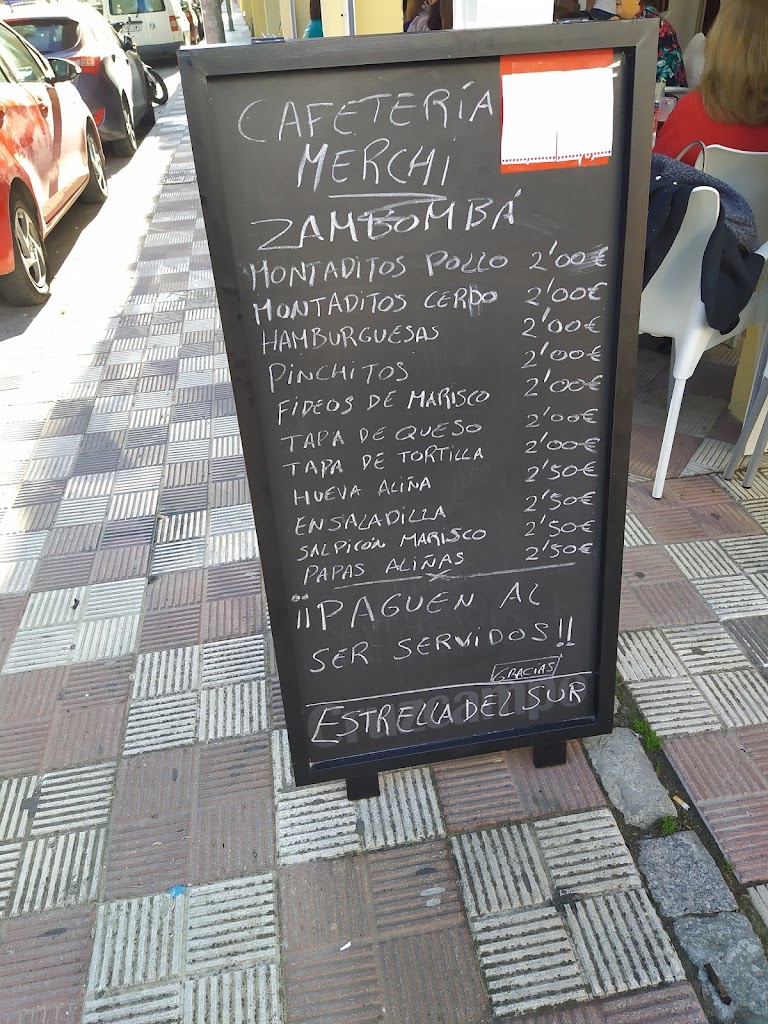 CAFETERÍA
MERCHI
ZAMBOMBÁ
MONTADITOS POLLO 2'00€
MONTADITOS CERDO 2'00€
HAMBURGUESAS 2'00€
PINCHITOS 2'00€
FIDEOS DE MARISCO 2'00€
TAPA DE QUESO 2'00€
TAPA DE TORTILLA 2'00€
HUEVA ALIÑA 2'50€
ENSALADILLA 2'50€
SALPICÓN MARISCO 2'50€
PAPAS ALIÑAS 2'50€
¡¡PAGUEN AL
SER SERVIDOS!!
GRACIAS
Cruzcampo
ESTRELLA DEL SUR